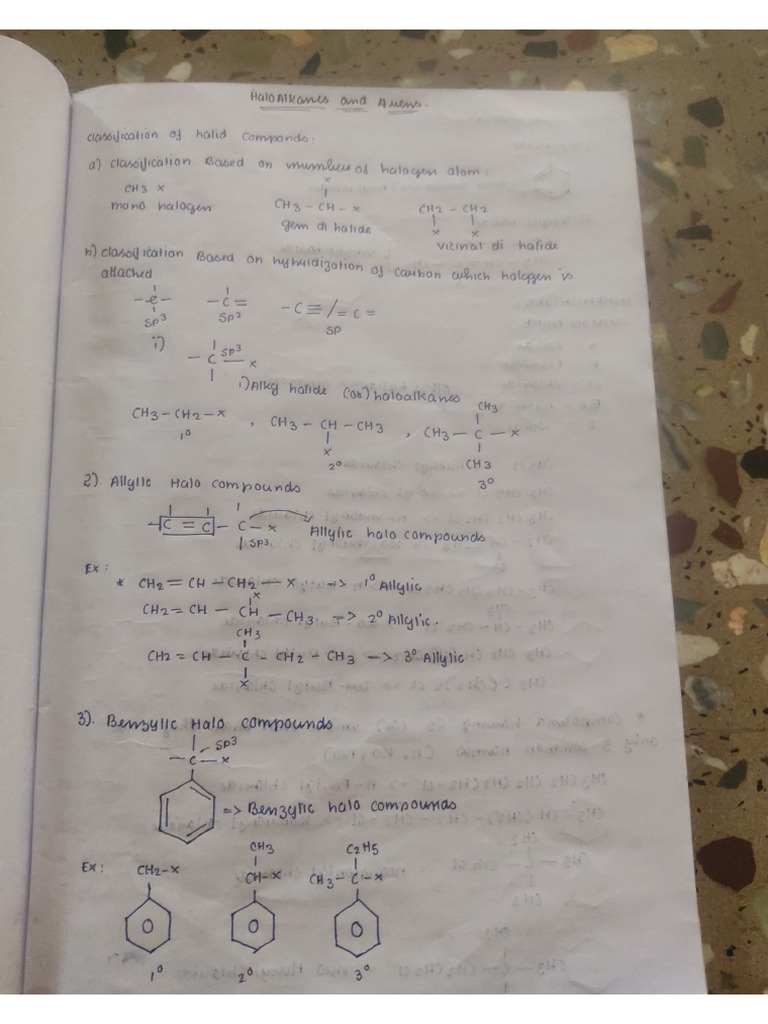 HaloAlkanes and Arens.
classification of halid componds:
a) classification Based on number of halogen atom:
CH3 X
mono halogen
X
CH3 - CH - X
gem di halide
CH2 - CH2
X X
vicinal di halide
b) classification Based on hybridization of carbon which halogen is
attached
- C - - C = - C ≡ / = C =
SP3 SP2 SP
i)
- C - X
SP3
i) Alky halide (or) haloalkanes
CH3 - CH2 - X
1°
, CH3 - CH - CH3
X
2°
CH3
, CH3 - C - X
CH3
3°
2). Allylic Halo compounds
C = C - C - X Allylic halo compounds
SP3.
Ex:
* CH2 = CH - CH2 - X -> 1° Allylic
X
CH2 = CH - CH - CH3 -> 2° Allylic.
CH3
CH2 = CH - C - CH2 - CH3 -> 3° Allylic
X
3). Benzylic Halo compounds
SP3
- C - X
=> Benzylic halo compounds
Ex:
CH2-X
1°
CH3
CH-X
2°
C2H5
CH3 - C - X
3°